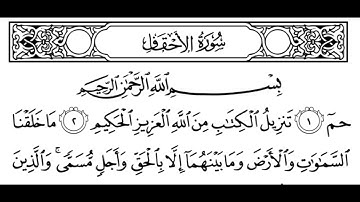 سُورَةُ الأَحْقَافِ
بِسْمِ اللَّهِ الرَّحْمَٰنِ الرَّحِيمِ
حمٓ ۝١ تَنزِيلُ الْكِتَابِ مِنَ اللَّهِ الْعَزِيزِ الْحَكِيمِ ۝٢ مَا خَلَقْنَا
السَّمَاوَاتِ وَالْأَرْضَ وَمَا بَيْنَهُمَآ إِلَّا بِالْحَقِّ وَأَجَلٍ مُّسَمًّى ۚ وَالَّذِينَ